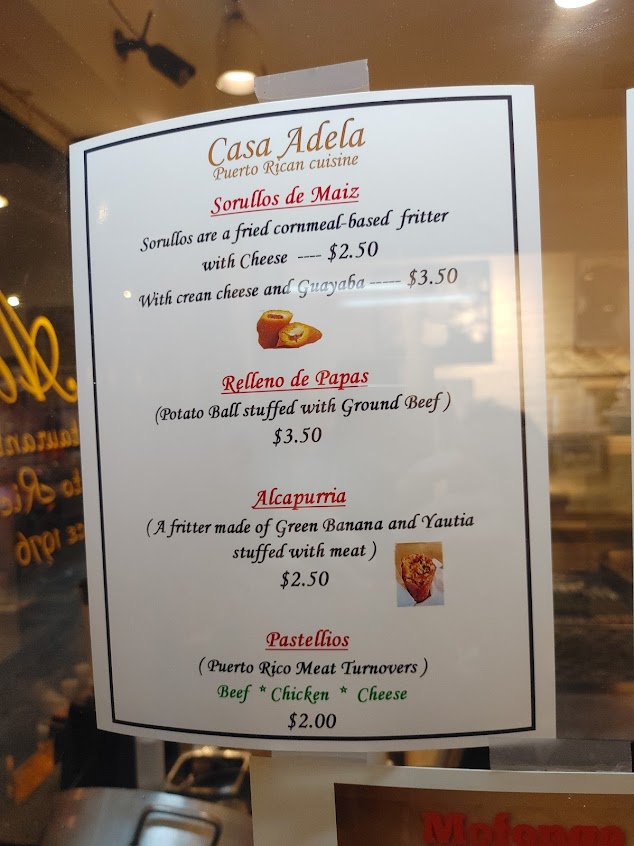 Casa Adela
Puerto Rican cuisine
Sorullos de Maiz
Sorullos are a fried cornmeal-based fritter
with Cheese ---- $2.50
With crean cheese and Guayaba ----- $3.50
Relleno de Papas
(Potato Ball stuffed with Ground Beef)
$3.50
Alcapurria
(A fritter made of Green Banana and Yautia
stuffed with meat)
$2.50
Pastellios
(Puerto Rico Meat Turnovers)
Beef * Chicken * Cheese
$2.00
Mofongo
1976